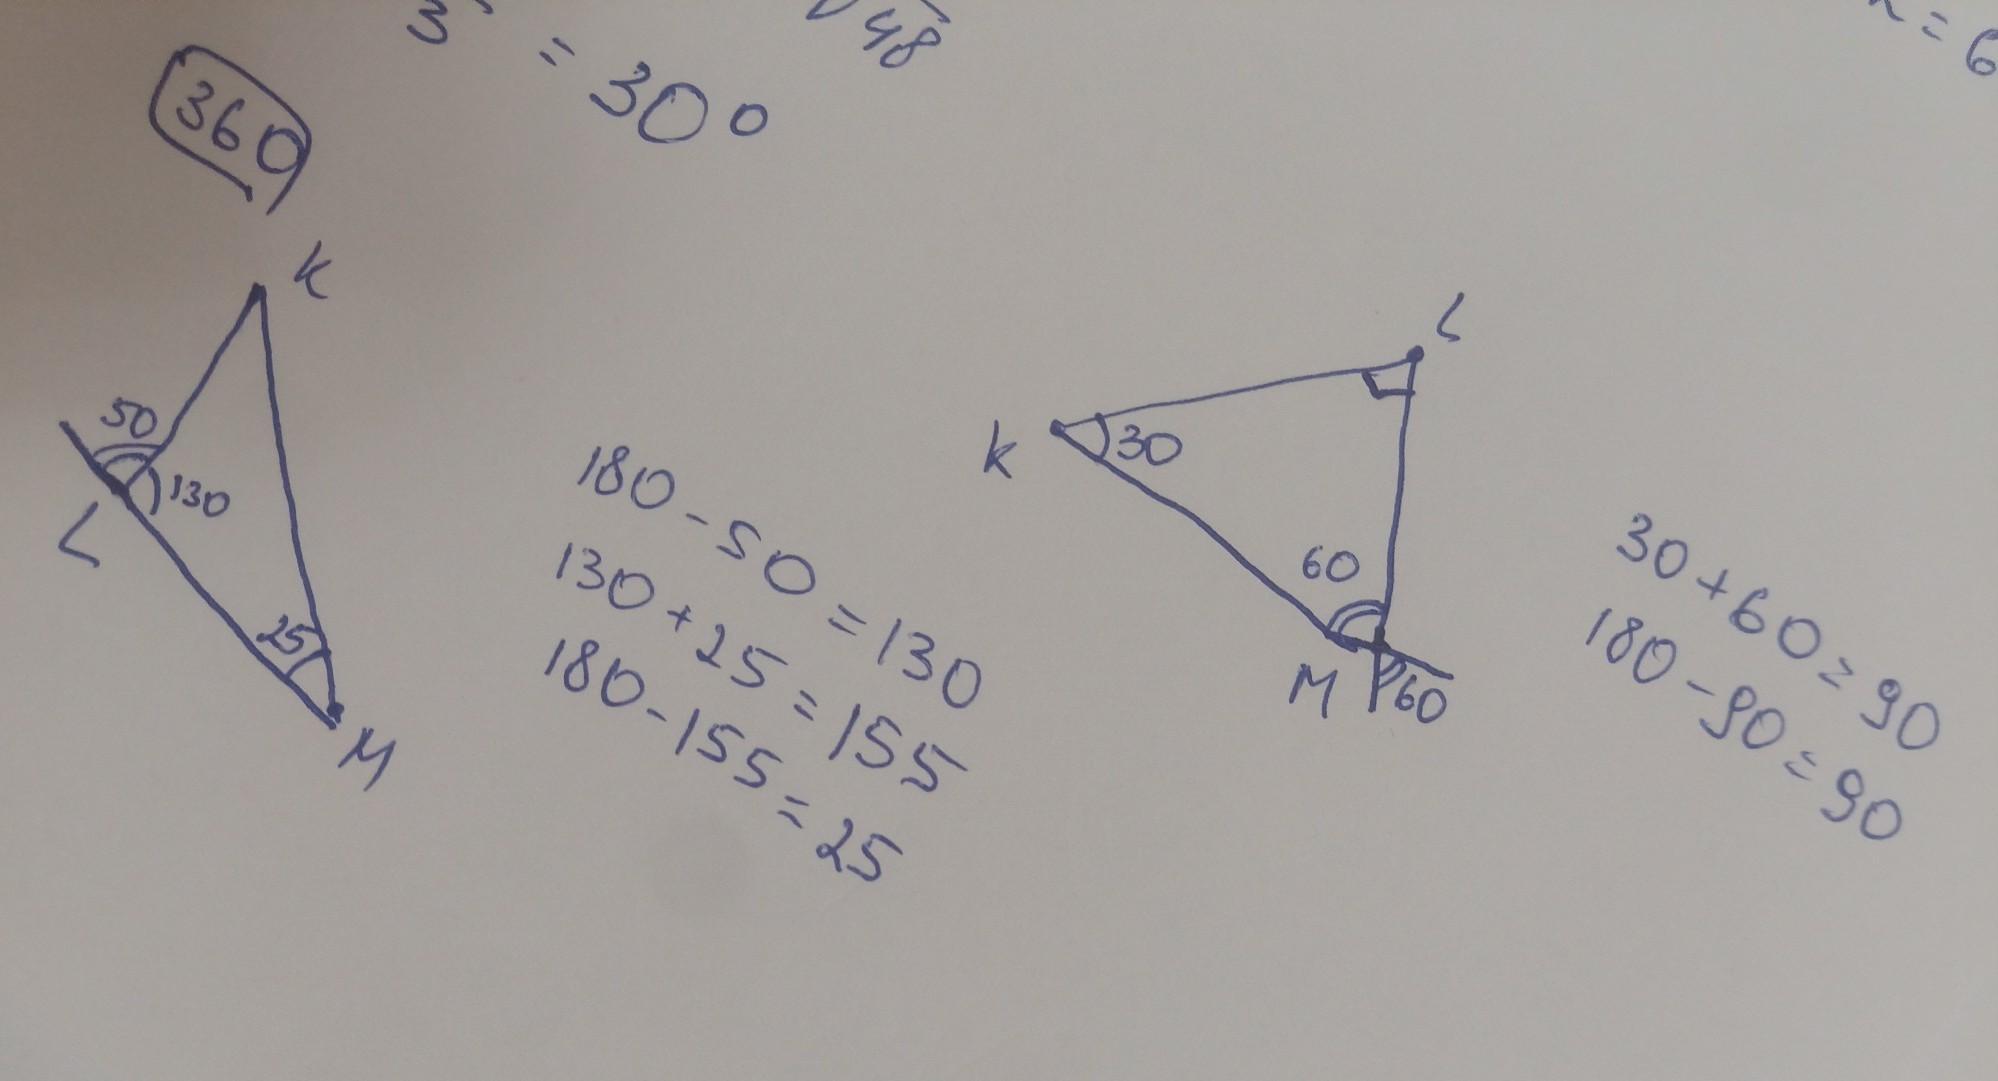 3 = 30°
√48
= 6
360
K
50
130
L
25
M
180 - 50 = 130
130 + 25 = 155
180 - 155 = 25
L
K
30
60
M
60
30 + 60 = 90
180 - 90 = 90